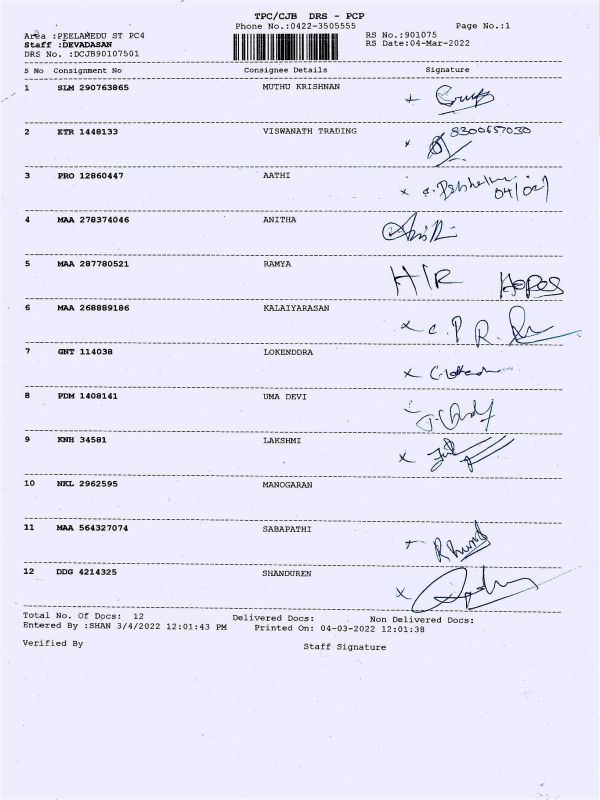 TPC/CJB DRS - PCP
Phone No.:0422-3505555 Page No.:1
Area :PEELAMEDU ST PC4 RS No.:901075
Staff :DEVADASAN RS Date:04-Mar-2022
DRS No. :DCJB90107501
S No Consignment No Consignee Details Signature
1 SLM 290763865 MUTHU KRISHNAN
2 ETR 1448133 VISWANATH TRADING 8300657030
3 PRO 12860447 AATHI
04/02/
4 MAA 278374046 ANITHA
5 MAA 287780521 RAMYA H/R
6 MAA 268889186 KALAIYARASAN
7 GNT 114038 LOKENDDRA
8 PDM 1408141 UMA DEVI
9 KNH 34581 LAKSHMI
10 NKL 2962595 MANOGARAN
11 MAA 564327074 SABAPATHI
12 DDG 4214325 SHANDUREN
Total No. Of Docs: 12 Delivered Docs: Non Delivered Docs:
Entered By :SHAN 3/4/2022 12:01:43 PM Printed On: 04-03-2022 12:01:38
Verified By Staff Signature